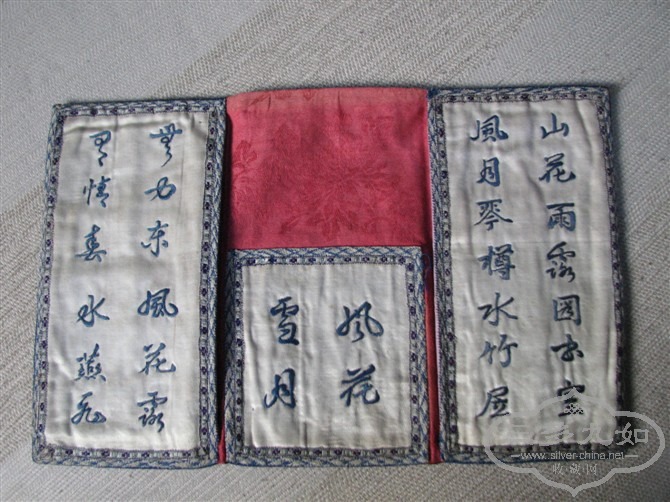 山花雨露图书室
風月琴樽水竹居
風花
雪月
無力東風花露
有情春水燕飛
www.silver-china.net